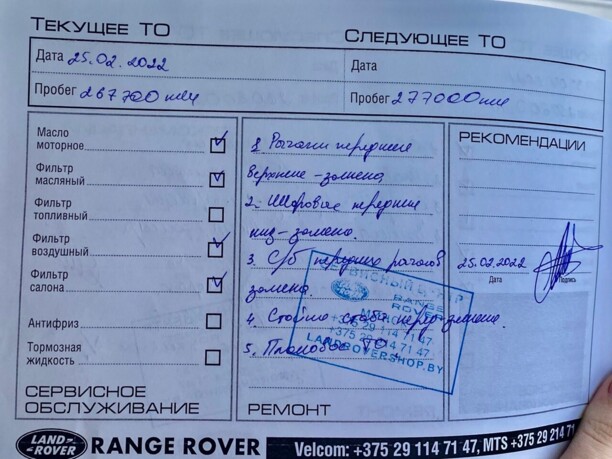 ТЕКУЩЕЕ ТО
СЛЕДУЮЩЕЕ ТО
Дата 25.02.2022
Дата
Пробег 267700 км
Пробег 277000 км
Масло моторное
Фильтр масляный
Фильтр топливный
Фильтр воздушный
Фильтр салона
Антифриз
Тормозная жидкость
СЕРВИСНОЕ ОБСЛУЖИВАНИЕ
1. Рычаги передние
верхние - замена
2. Шаровые передние
низ - замена.
3. С/б передних рычагов
замена.
4. Стойки стаб. перед - замена.
5. Плановое ТО.
РЕМОНТ
РЕКОМЕНДАЦИИ
25.02.2022
Дата
Подпись
RANGE
ROVER
+375 29 114 71 47
+375 29 214 71 47
LANDROVERSHOP.BY
LAND ROVER
RANGE ROVER
Velcom: +375 29 114 71 47, MTS +375 29 214 71